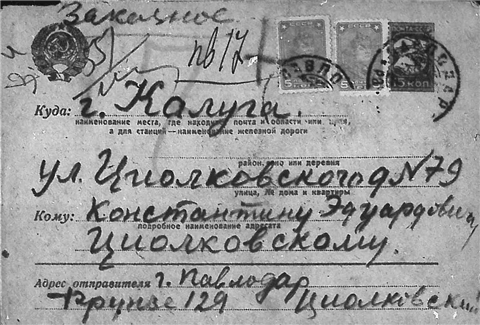 Заказное
№17
5 5
КОП
Куда: г. Калуга.
наименование места, где находится почта и области или края,
а для станций—наименование железной дороги
район, село или деревня
ул. Циолковского д N79
улица, № дома и квартиры
Кому: Константину Эдуардовичу
подробное наименование адресата
Циолковскому.
Адрес отправителя г. Павлодар
Фрунзе 129 Циолковский